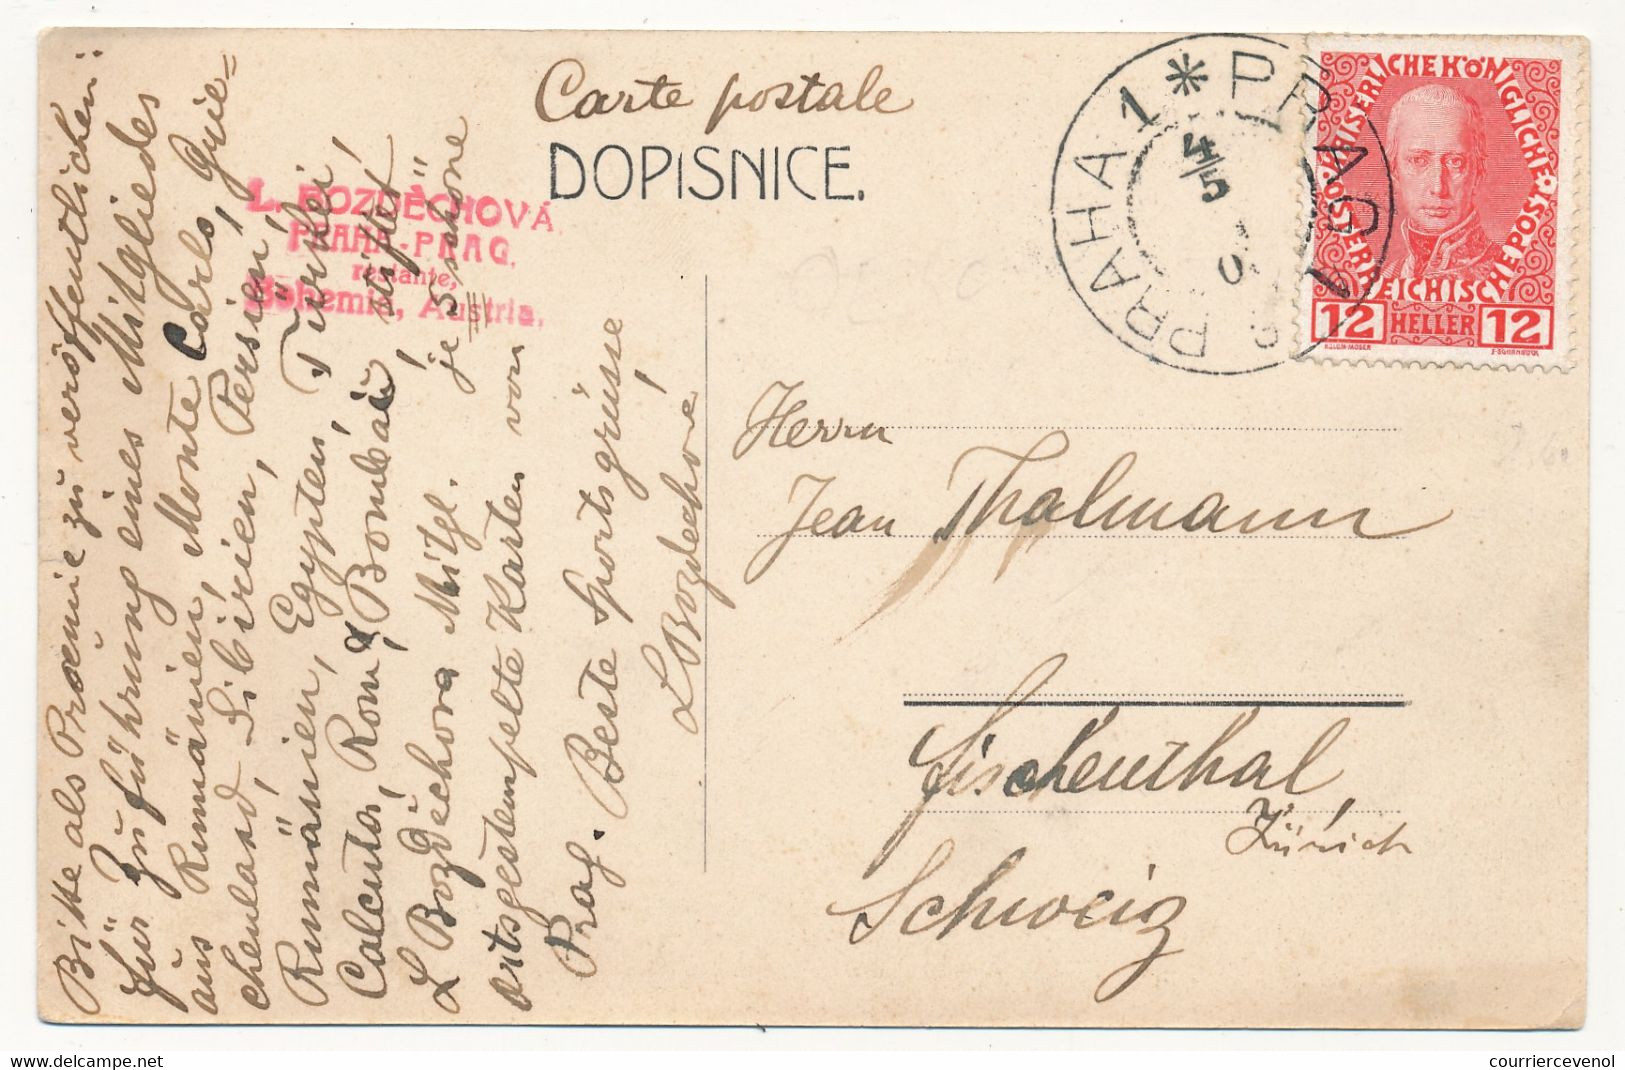 Carte postale
DOPISNICE.
L. BOZDĚCHOVÁ
PRAHA-PRAG.
restante,
Bohemia, Austria.
PRAHA 1 * PRAG 1
4/5
KAISERLICHE KÖNIGLICHE
ÖSTERREICHISCHE POST
12 HELLER 12
Bitte als Præmie zu veröffentlichen:
für Zuführung eines Mitgliedes
aus Rumänien, Monte Carlo, Grie=
chenland, Sibirien, Persien,
Rumänien, Egypten, Türkei,
Calcutta, Rom & Bombai, stiftet
L Bozděchova Mitgl. je 5 schöne
ortsgestempelte Karten von
Prag. Beste Sportsgrüsse
LBozdechová
Herrn
Jean Thalmann
Fischenthal,
Zürich
Schweiz
courriercevenol